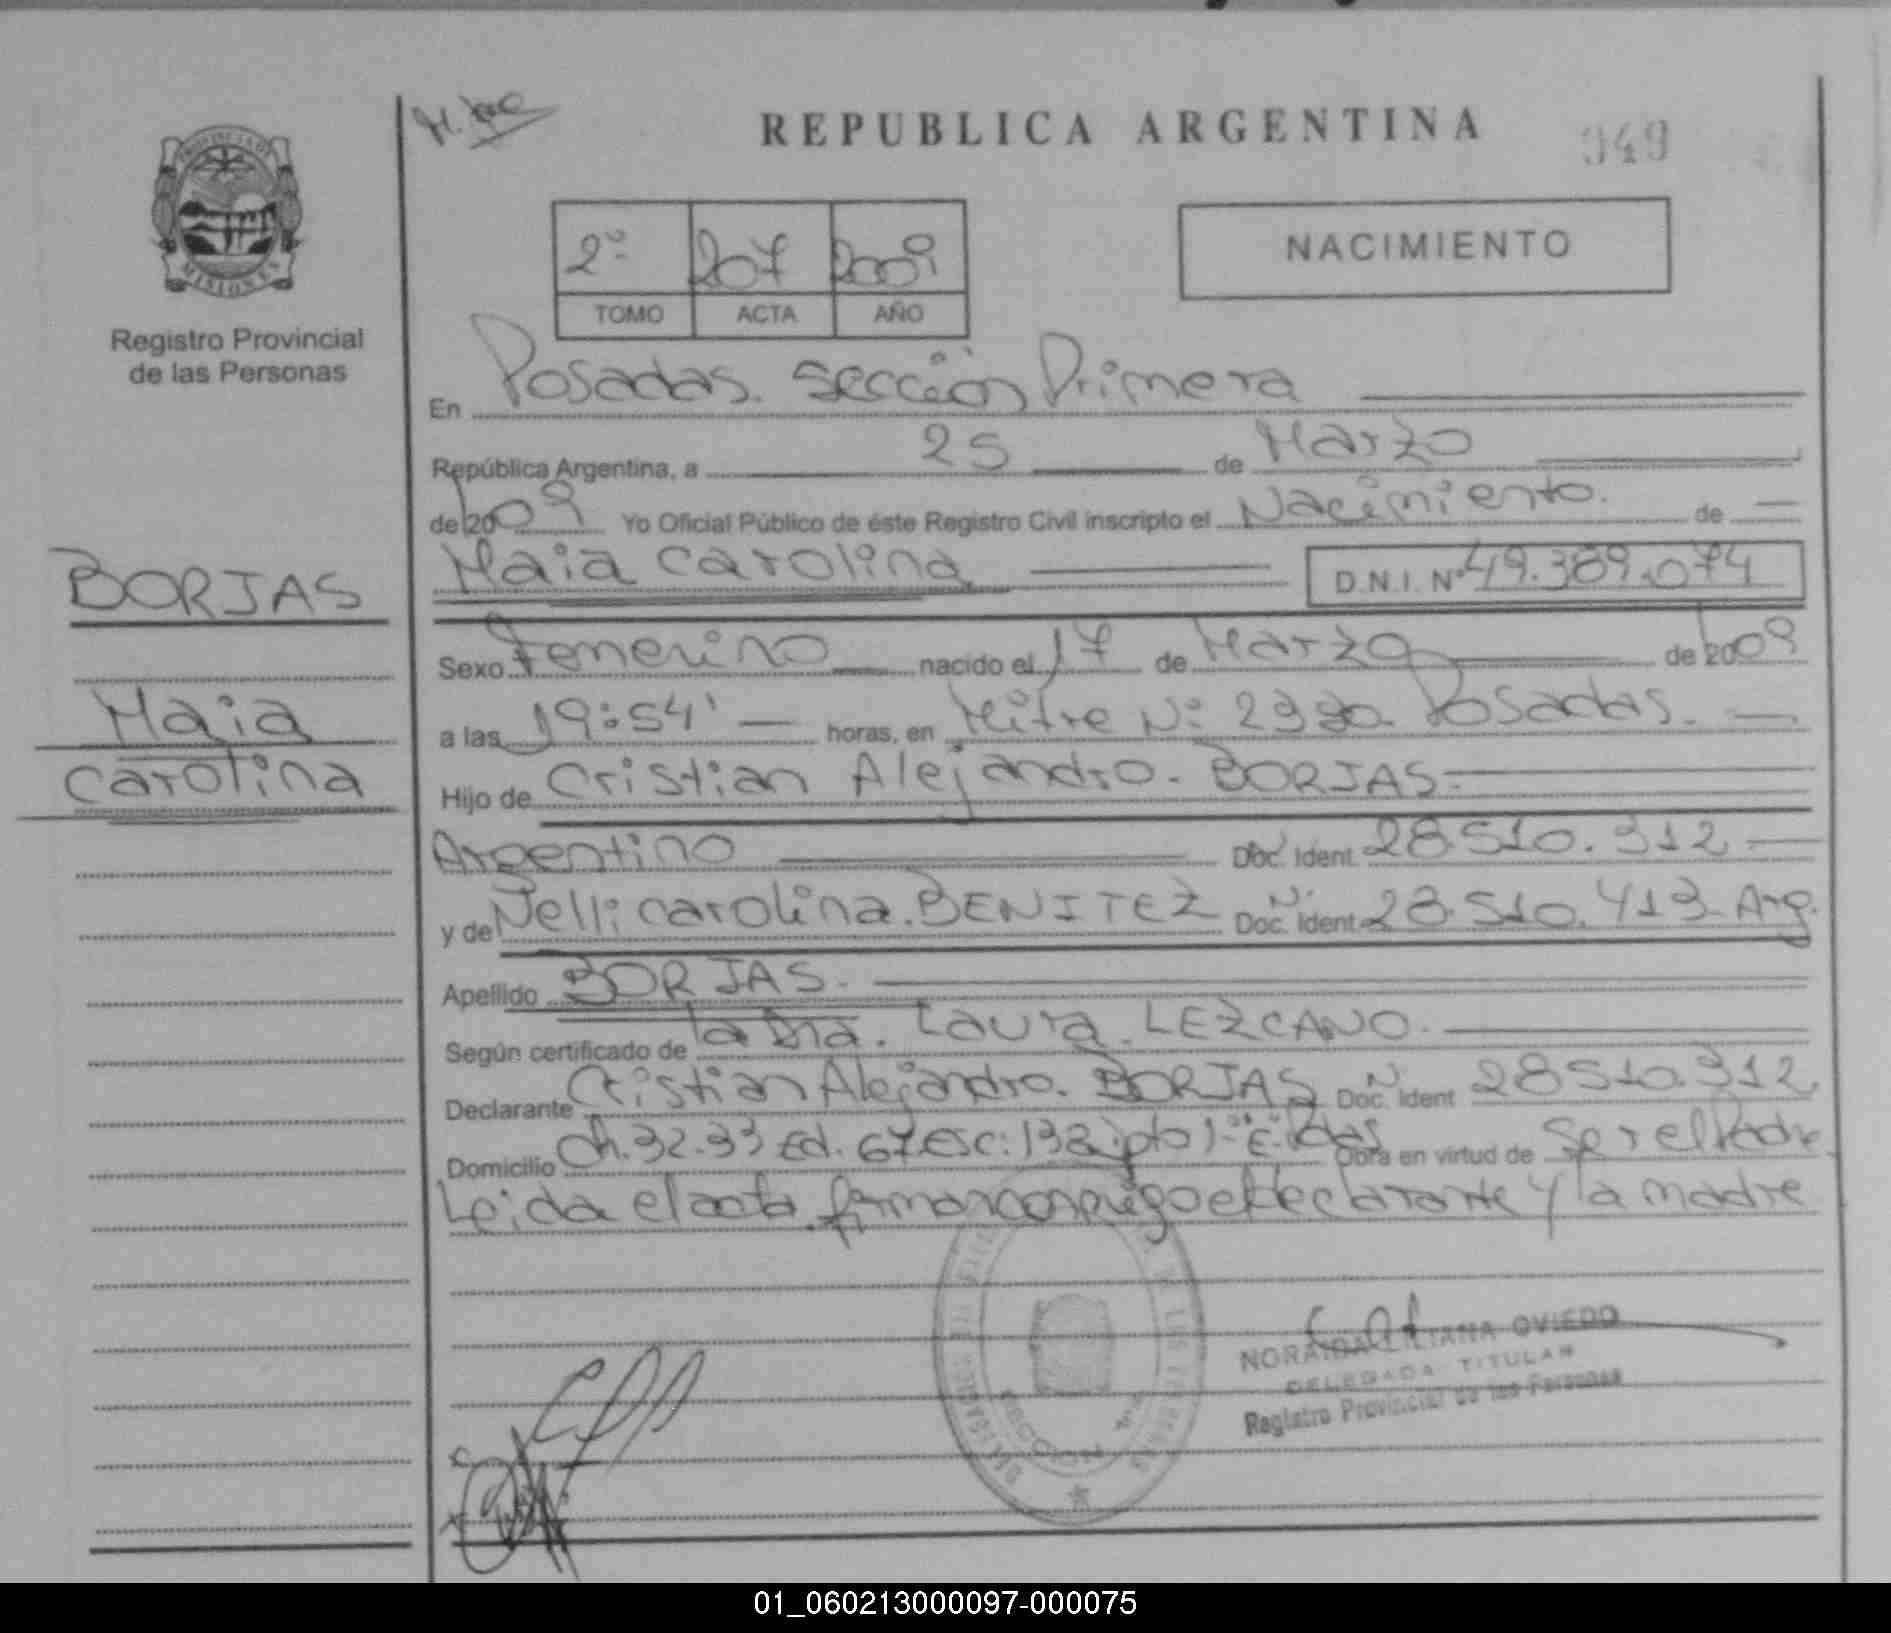 REPUBLICA ARGENTINA
949
PROVINCIA DE
MISIONES
Registro Provincial
de las Personas
2º 207 2009
TOMO ACTA AÑO
NACIMIENTO
En Posadas. Sección Primera
República Argentina, a 25 de Marzo
de 2009 Yo Oficial Público de éste Registro Civil inscripto el Nacimiento. de
BORJAS
Maia
Carolina
Maia Carolina D.N.I. Nº 49.389.074
Sexo Femenino nacido el 17 de Marzo de 2009
a las 19:54' horas, en Mitre Nº 2990. Posadas.
Hijo de Cristian Alejandro. BORJAS.
Argentino Doc. Ident. 28.510.312
y de Nelli Carolina. BENITEZ Doc. Ident. 28.510.413 Arg.
Apellido BORJAS.
Según certificado de la Dra. Laura. LEZCANO.
Declarante Cristian Alejandro. BORJAS Doc. Ident 28510.312
Domicilio Ch. 32.33 Ed. 67 esc: 132 pto 1º E. Pdas Obra en virtud de Ser el Padre
Leida el acta firman conmigo el Declarante y la madre
NORAIDA LILIANA OVIEDO
DELEGADA TITULAR
Registro Provincial de las Personas
01_060213000097-000075